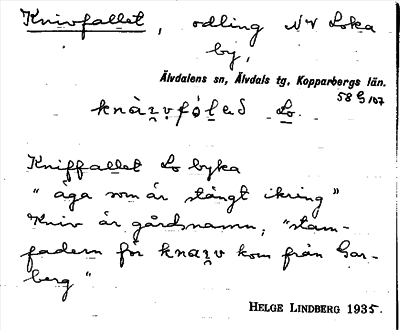 Knivfallet, odling NV Loka
by,
Älvdalens sn, Älvdals tg, Kopparbergs län.
58 G 107
Lo.
Kniffallet Lo byka
" äga som är stängt ikring "
Kniv är gårdsnamn, "stam-
fadern för knaɪv kom från Gar-
berg "
HELGE LINDBERG 1935.